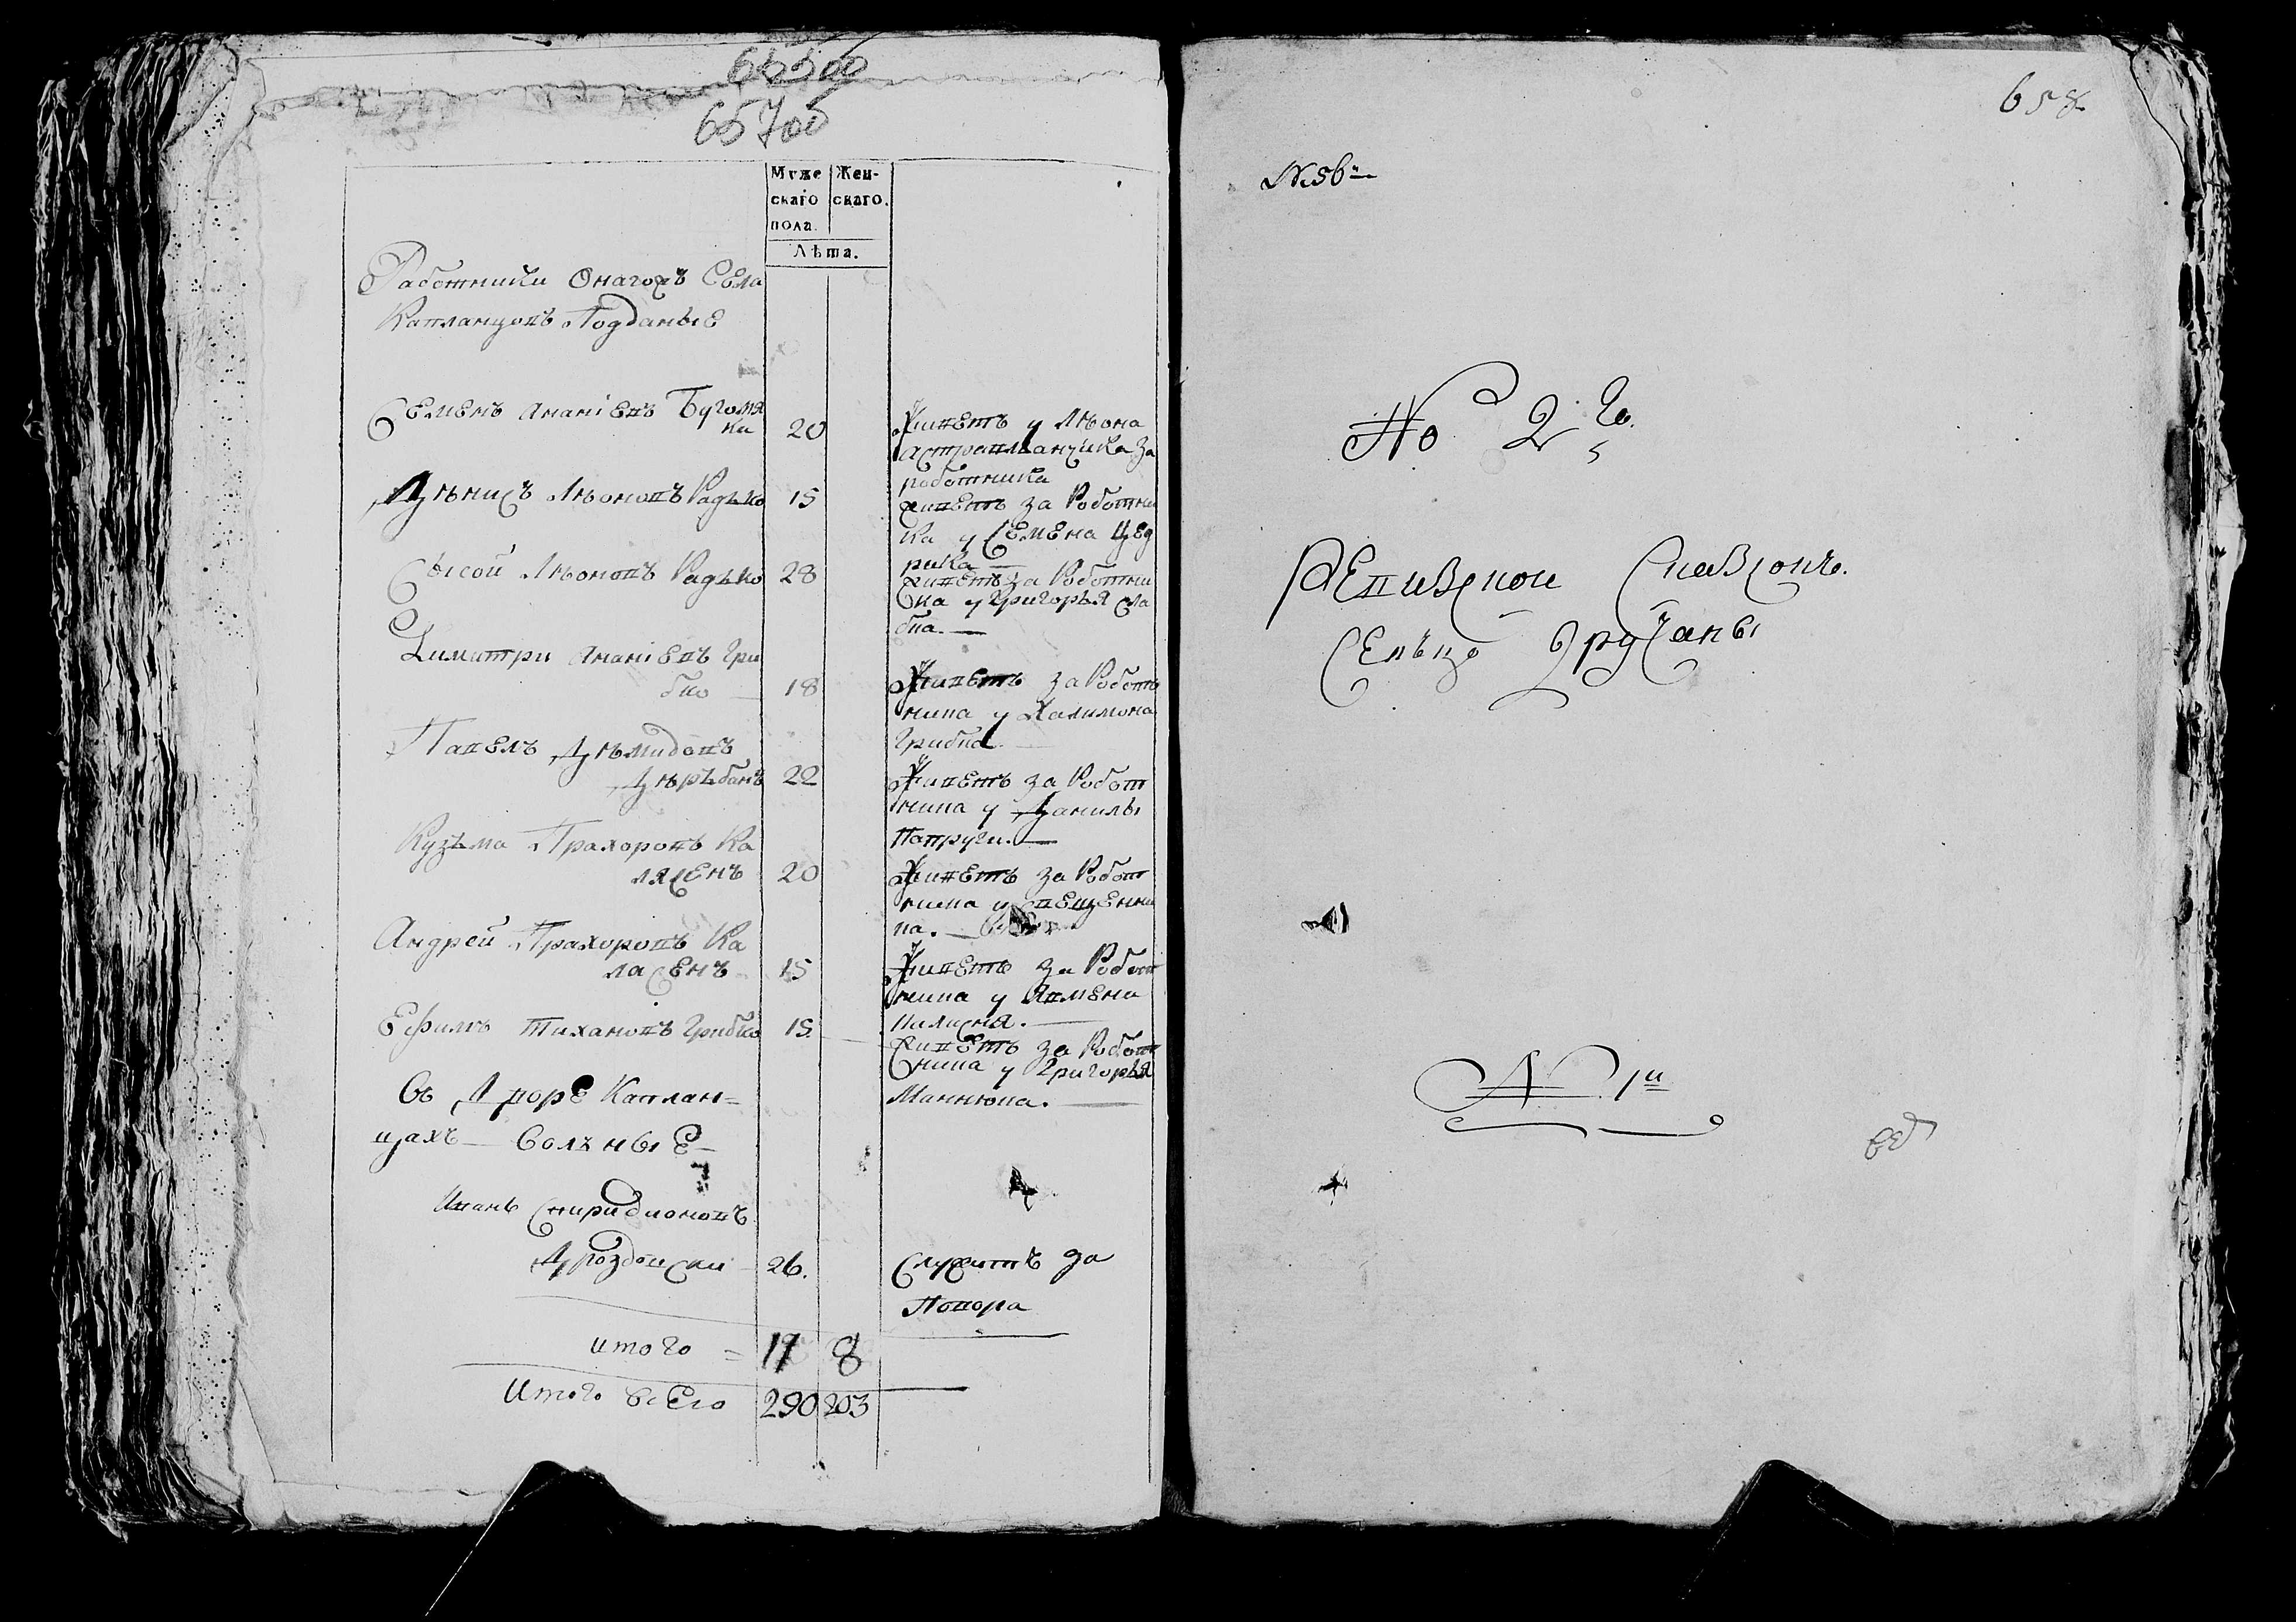 65500
65700
Муже Жен-
скаго скаго.
пола.
Лѣта.
Работники Онагожъ Села
Капланцовъ Подданые
Семенъ Ананіевъ
ка 20
Живетъ у Лѣона
за
работника
Дѣнисъ Лѣоновъ Радько 15
живетъ за Роботни
ка у Семена Цед
рика —
Сысой Лѣоновъ Радько 28
живетъ за Роботни
ка у Григорья Сла
бка. —
Димитри Ананіевъ Гри
бко — 18
Живетъ за Робот
ника у Халимона
Грибка. —
Павелъ Дѣмидовъ
22
Живетъ за Робот
ника у Данилы
Папруги. —
Кузьма Прахоровъ Ка
лясенъ 20
Живетъ за Робот
ника у Свещенни
ка. —
Андрей Прахоровъ Ка
ласенъ 15
Живетъ за Робот
ника у
Ефимъ Тихановъ Грибко 15.
Живетъ за Робот
ника у Григорья
Манкюка. —
Въ Дворе Каплан=
цахъ — Волъные —
Иванъ Спиридионовъ
Дроздовски 26.
Служитъ за
Повора
итого = 17 8
Итого всего 290 203
658
№ 56й
No 2го.
Ревизской Сказкою.
Селъцо
№ 1й